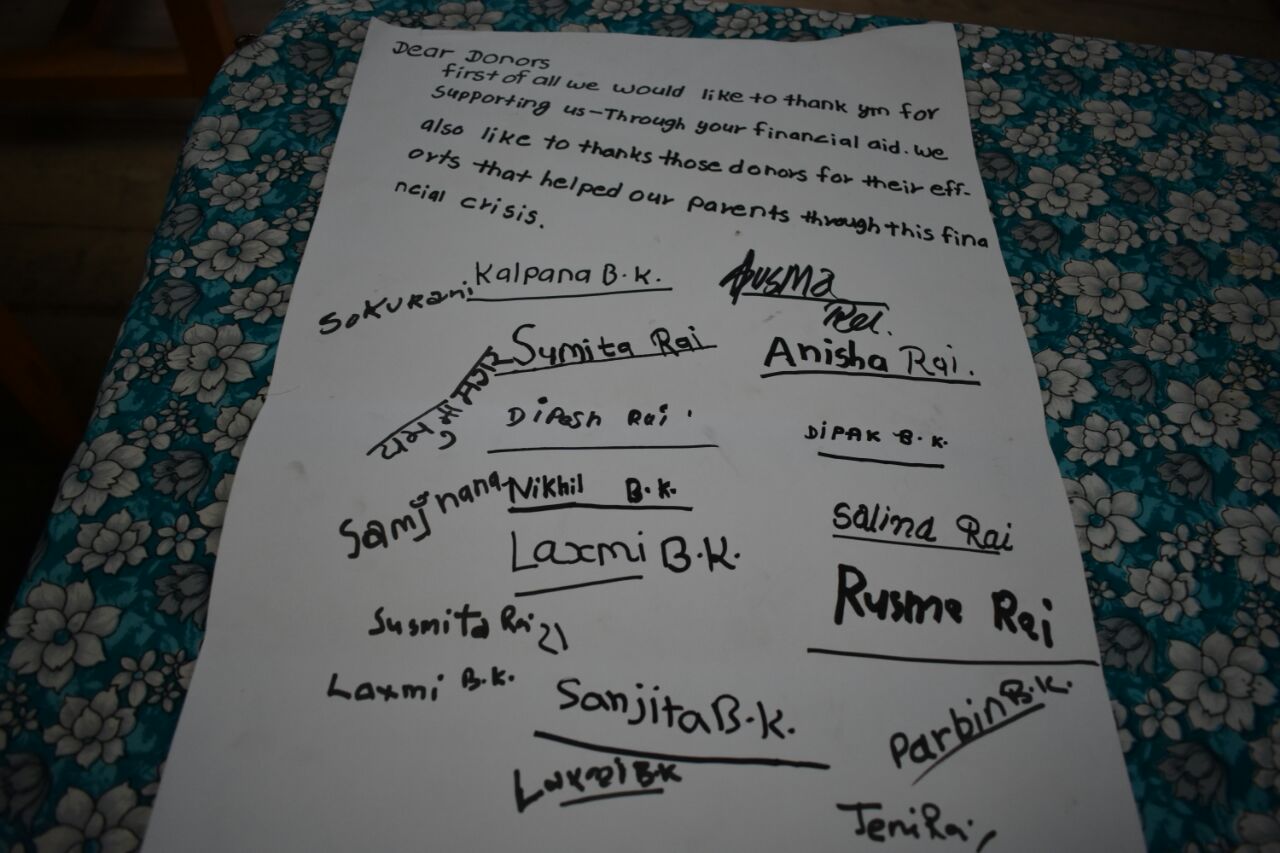 Dear Donors
first of all we would like to thank you for
supporting us-Through your financial aid. we
also like to thanks those donors for their eff-
orts that helped our parents through this fina
ncial crisis.
Kalpana B.K.
Sokurani
Rusma
Rai.
Sumita Rai
Anisha Rai.
Dipesh Rai
DiPAK B.K.
Nikhil B.K.
Samjhana
Salina Rai
Laxmi B.K.
Rusma Rai
Susmita Rai
Laxmi B.K.
Sanjita B.K.
Parbin B.K.
Laxmi B.K
Jeni Rai